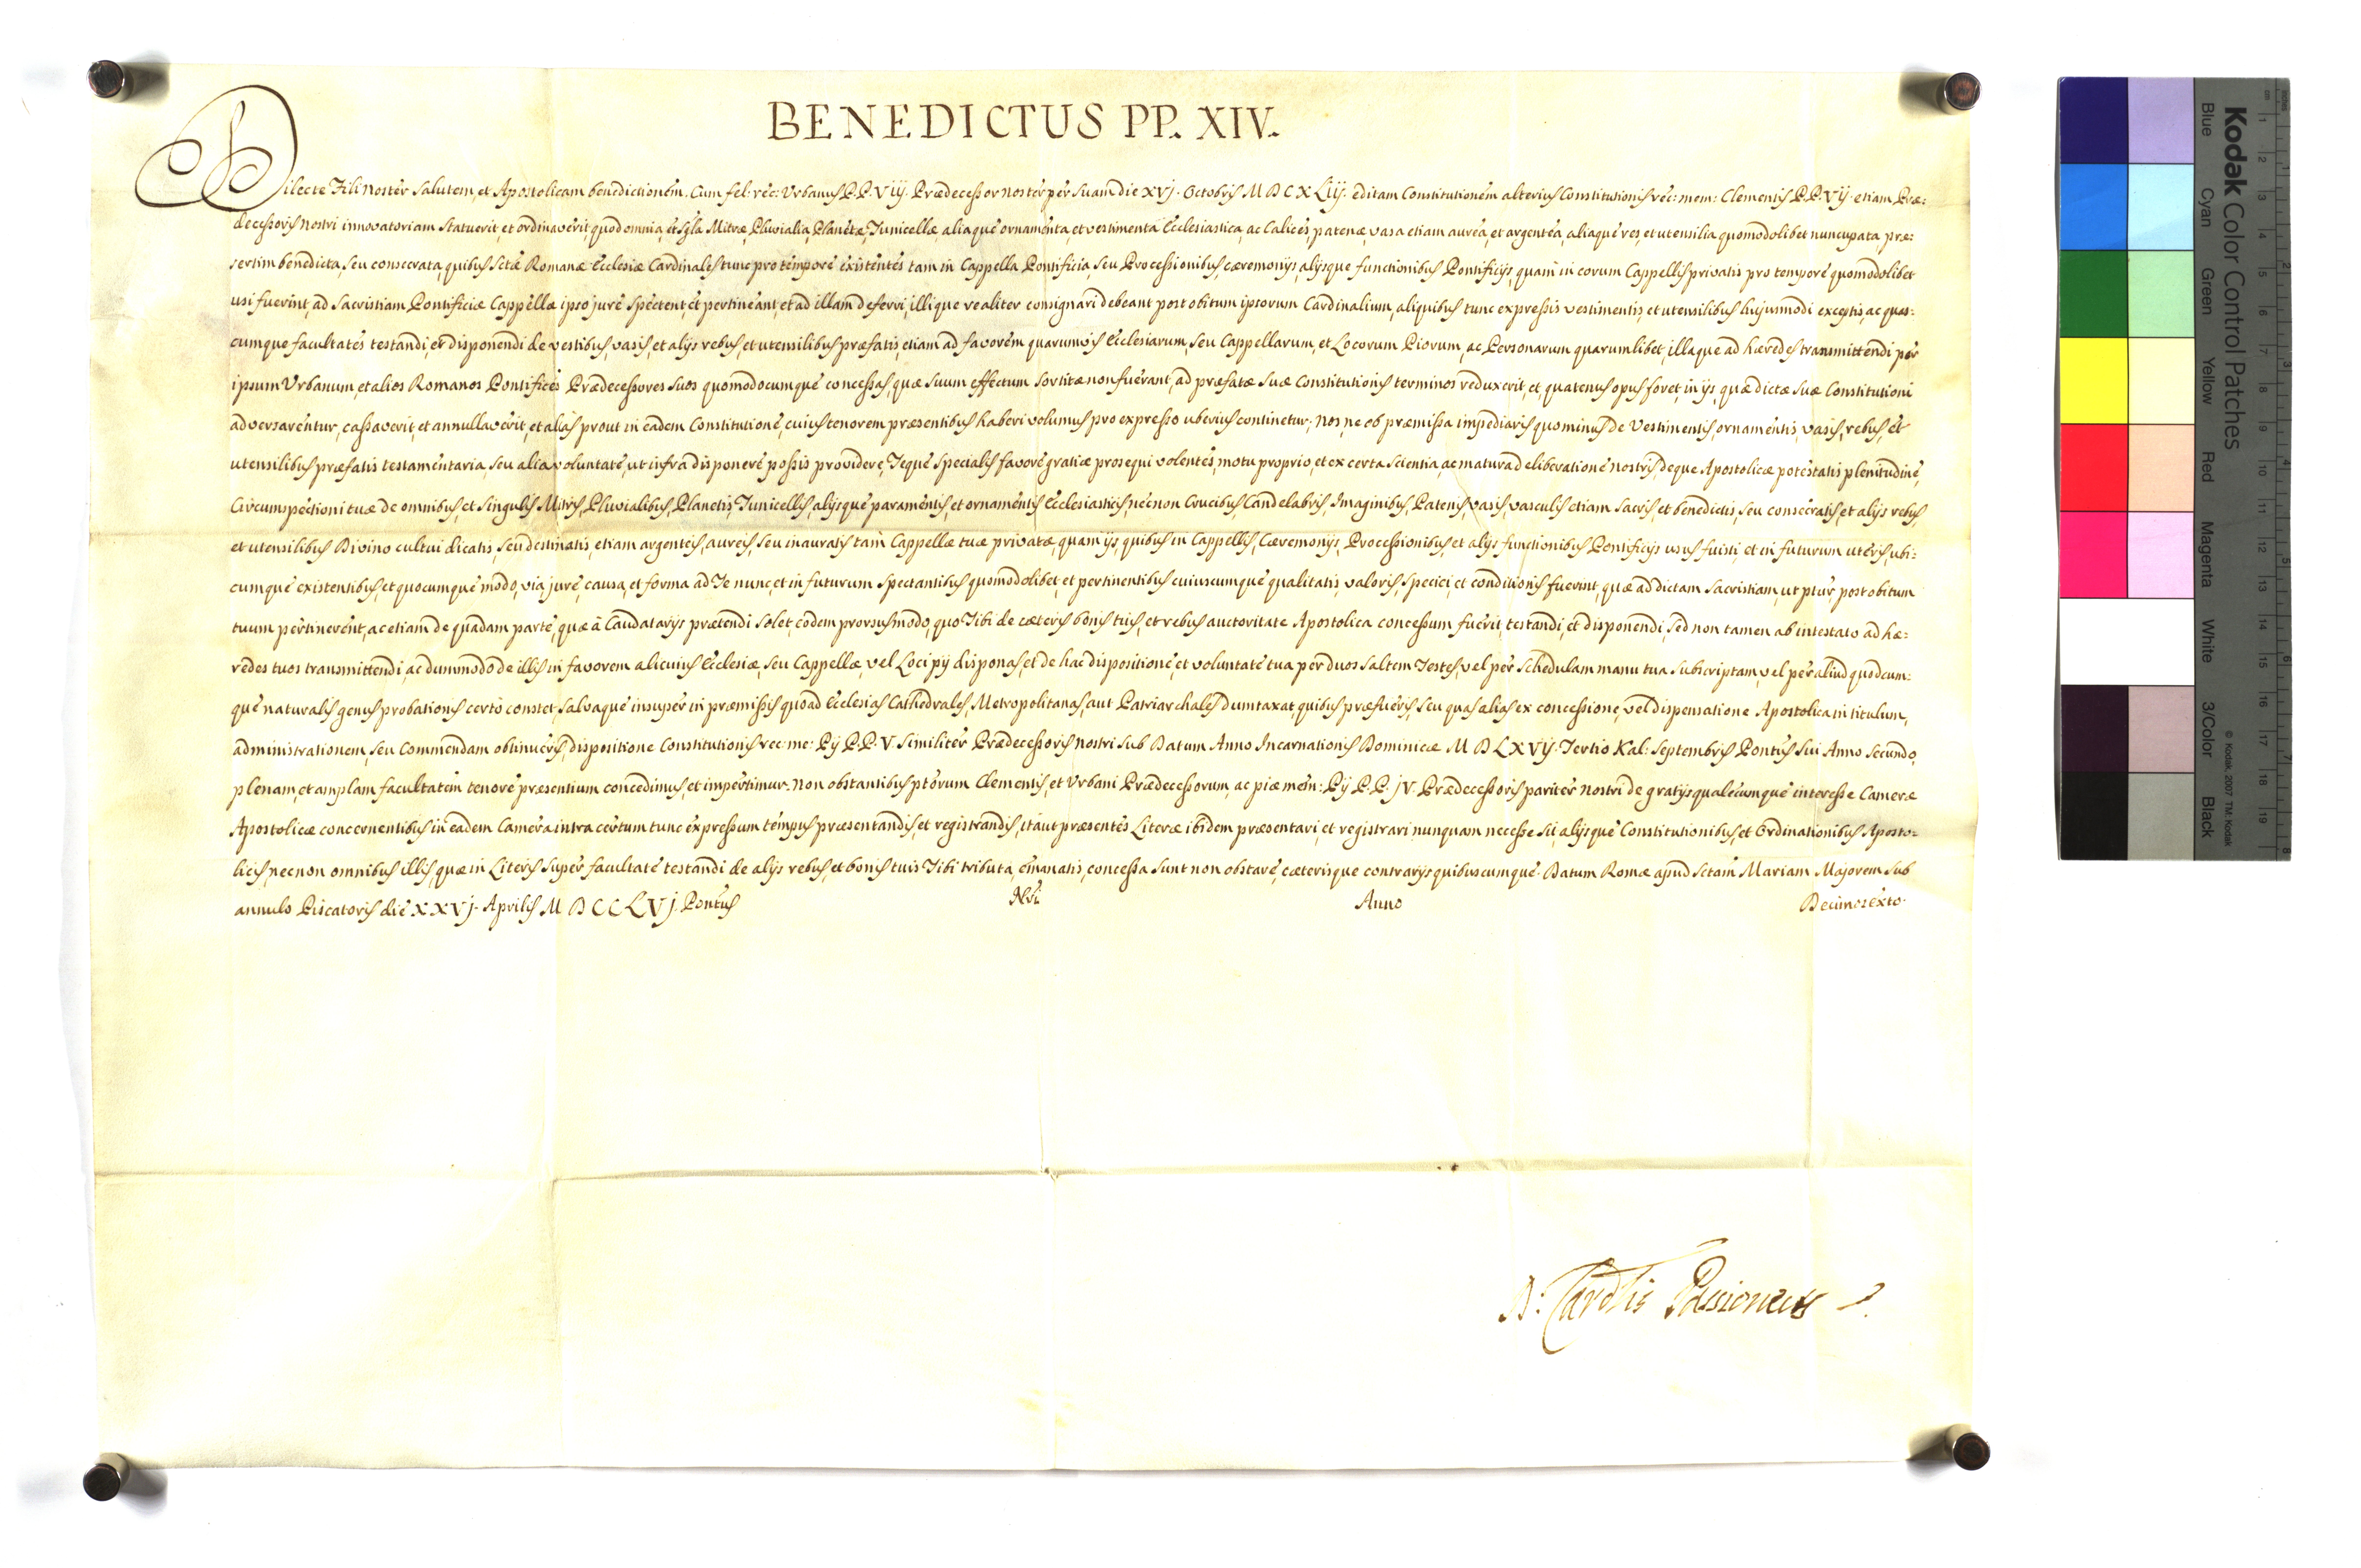 BENEDICTUS PP. XIV.
Dilecte Fili Noster Salutem, et Apostolicam benedictionem. Cum fel: rec: Urbanus P.P. Viij. Prædecessor noster per suam die xvj. Octobris M D C X Liij. editam Constitutionem alterius Constitutionis rec: mem: Clementis P.P. Vij. etiam Præ:
decessoris Nostri innovatoriam statuerit, et ordinaverit, quod omnia, et sgla Mitræ, Pluvialia, Planetæ, Tunicellæ aliaque ornamenta, et vestimenta Ecclesiastica, ac Calices, patenæ, vasa etiam aurea, et argentea, aliaque res, et utensilia quomodolibet nuncupata, præ:
sertim benedicta, seu consecrata, quibus Sctæ Romanæ Ecclesiæ Cardinales tunc pro tempore existentes tam in Cappella Pontificia, seu Processionibus, cæremonijs, alijsque functionibus Pontificijs, quam in eorum Cappellis privatis pro tempore quomodolibet
usi fuerint, ad Sacristiam Pontificiæ Cappellæ ipso jure spectent, et pertineant, et ad illam deferri, illique realiter consignari debeant post obitum ipsorum Cardinalium, aliquibus tunc expressis vestimentis, et utensilibus hujusmodi exceptis, ac quas:
cumque facultates testandi, et disponendi de vestibus, vasis, et alijs rebus, et utensilibus præfatis, etiam ad favorem quarumvis Ecclesiarum, seu Cappellarum, et Locorum Piorum, ac Personarum quarumlibet, illaque ad hæredes transmittendi per
ipsum Urbanum, et alios Romanos Pontifices Prædecessores suos quomodocumque concessas, quæ suum effectum sortitæ non fuerant, ad præfatæ suæ Constitutionis terminos reduxerit, et quatenus opus foret, in ijs, quæ dictæ suæ Constitutioni
adversarentur, cassaverit, et annullaverit, et alias prout in eadem Constitutione, cuius tenorem præsentibus haberi volumus pro expresso uberius continetur; Nos, ne ob præmissa impediaris quominus de Vestimentis, ornamentis, vasis, rebus, et
utensilibus præfatis testamentaria, seu alia voluntate, ut infra disponere possis providere, Teque specialis favore gratiæ prosequi volentes, motu proprio, et ex certa scientia, ac matura deliberatione nostris, deque Apostolicæ potestatis plenitudine,
Circumspectioni tuæ de omnibus, et singulis Mitris, Pluvialibus, Planetis, Tunicellis, alijsque paramentis, et ornamentis Ecclesiasticis, necnon Crucibus, Candelabris, Imaginibus, Patenis, vasis, vasculis etiam sacris, et benedictis, seu consecratis, et alijs rebus,
et utensilibus Divino cultui dicatis, seu destinatis, etiam argenteis, aureis, seu inauratis tam Cappellæ tuæ privatæ, quam ijs, quibus in Cappellis, Cæremonijs, Processionibus, et alijs functionibus Pontificijs usus fuisti, et in futurum uteris, ubi:
cumque existentibus, et quocumque modo, via, jure, causa, et forma ad Te nunc, et in futurum spectantibus quomodolibet, et pertinentibus cuiuscumque qualitatis, valoris, speciei, et conditionis fuerint, quæ ad dictam Sacristiam, ut ptur, post obitum
tuum pertinerent, ac etiam de quadam parte, quæ à Caudatarijs prætendi solet, eodem prorsus modo, quo Tibi de cæteris bonis tuis, et rebus auctoritate Apostolica concessum fuerit, testandi, et disponendi, sed non tamen ab intestato ad hæ:
redes tuos transmittendi, ac dummodo de illis in favorem alicuius Ecclesiæ, seu Cappellæ, vel Loci pij disponas, et de hac dispositione, et voluntate tua per duos saltem Testes, vel per Schedulam manu tua subscriptam, vel per aliud quodcum:
que naturalis genus probationis certò constet, salvaque insuper in præmissis quoad Ecclesias Cathedrales, Metropolitanas, aut Patriarchales dumtaxat, quibus præfueris, seu quas alias ex concessione, vel dispensatione Apostolica in titulum,
administrationem, seu Commendam obtinueris, dispositione Constitutionis rec: me: Pij P.P. V. similiter Prædecessoris nostri sub Datum Anno Incarnationis Dominicæ M D L X Vij. Tertio Kal: Septembris Pontus sui Anno secundo,
plenam, et amplam facultatem tenore præsentium concedimus, et impertimur. Non obstantibus ptorum Clementis, et Urbani Prædecessorum, ac piæ mem: Pij P.P. jV. Prædecessoris pariter nostri de gratijs qualecumque interesse Cameræ
Apostolicæ concernentibus in eadem Camera intra certum tunc expressum tempus præsentandis, et registrandis, ita ut præsentes Literæ ibidem præsentari, et registrari nunquam necesse sit, alijsque Constitutionibus, et Ordinationibus Aposto=
licis, necnon omnibus illis, quæ in Literis super facultate testandi de alijs rebus, et bonis tuis Tibi tributa, emanatis, concessa sunt non obstare, cæterisque contrarijs quibuscumque. Datum Romæ apud Sctam Mariam Majorem sub
annulo Piscatoris die XXVj. Aprilis M D C C L V j. Pontus Nri Anno Decimosexto.
D. Cardlis Passioneus
Kodak Color Control Patches
© Kodak, 2007 TM: Kodak
Blue Cyan Green Yellow Red Magenta White 3/Color Black
cm 1 2 3 4 5 6 7 8 9 10 11 12 13 14 15 16 17 18 19
inches 1 2 3 4 5 6 7 8